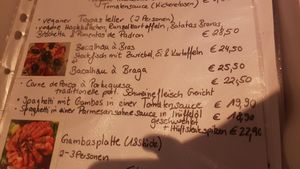 Tomatensauce (Kichererbsen)
• veganer Tapas teller (2 Personen)
vegane Hackbällchen, Runzelkartoffeln, Batatas Bravas,
Bruschetta & Pimentos de Padron € 28,50
Bacalhau à Bras € 24,50
Stockfisch mit Zwiebel, Ei & Kartoffeln
Bacalhau à Braga € 25,50
• Carne de Porco à Portuguesa € 22,50
traditionelle port. Schweinefleisch Gericht
• Spaghetti mit Gambas in einer Tomatensauce € 19,90
• Spaghetti in einer Parmesansahne sauce in Trüffelöl € 18,90
geschwenkt
+ Hüftsteakspitzen € 22,90
Gambasplatte (18 Stück)
2-3 Personen